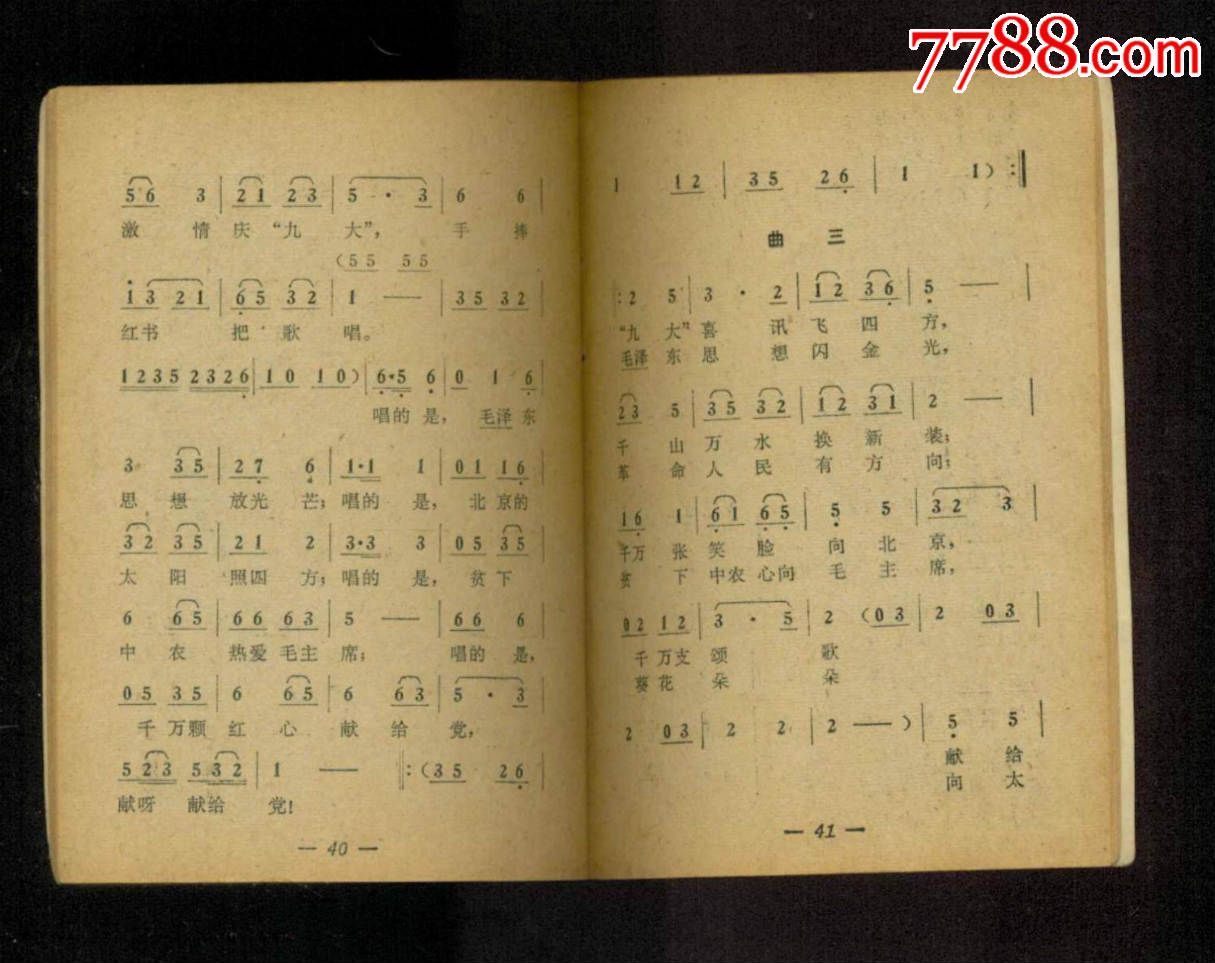 7788.com
56 3 | 21 23 | 5 · 3 | 6 6 |
激 情 庆 “九 大”, 手 捧
(55 55
13 21 | 65 32 | 1 — | 35 32 |
红书 把 歌 唱。
1235 2326 | 10 10) | 6·5 6 | 0 1 6 |
唱的 是, 毛泽 东
3 35 | 27 6 | 1·1 1 | 01 16 |
思 想 放光 芒; 唱的 是, 北 京的
32 35 | 21 2 | 3·3 3 | 05 35 |
太 阳 照四 方; 唱的 是, 贫 下
6 65 | 66 63 | 5 — | 66 6 |
中 农 热爱 毛主 席; 唱的 是,
05 35 | 6 65 | 6 63 | 5 · 3 |
千 万颗 红 心 献 给 党,
523 532 | 1 — ‖: (35 26 |
献呀 献给 党!
— 40 —
1 12 | 35 26 | 1 1) :‖
曲 三
: 2 5 | 3 · 2 | 12 36 | 5 — |
“九 大” 喜 讯 飞 四 方,
毛泽 东 思 想 闪 金 光,
23 5 | 35 32 | 12 31 | 2 — |
千 山 万 水 换 新 装;
革 命 人 民 有 方 向;
16 1 | 61 65 | 5 5 | 32 3 |
千万 张 笑 脸 向 北 京,
贫 下 中农 心向 毛 主 席,
02 12 | 3 · 5 | 2 (03 | 2 03 |
千 万支 颂 歌
葵 花 朵 朵
2 03 | 2 2 | 2 —) | 5 5 |
献 给
向 太
— 41 —